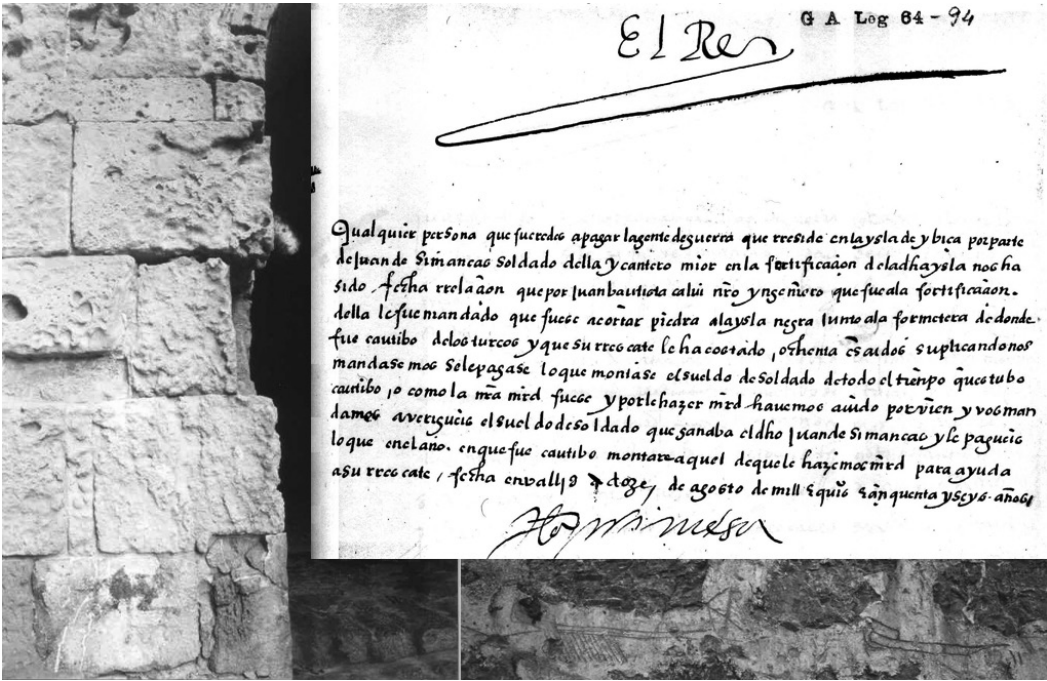 G A Leg 64-94
El Rey
Qualquier persona que fueredes a pagar la gente de guerra que rreside en la ysla de ybica por parte
de Juan de Simancas soldado della y cantero mior en la fortificaçion de la dha ysla nos ha
sido fecha rrelaçion que por Juan bautista calui nro yngeniero que fue a la fortificaçion.
della le fue mandado que fuese a cortar piedra a la ysla negra junto a la formetera de donde
fue cautibo de los turcos y que su rrescate le ha costado ochenta esc​udos suplicandonos
mandasemos se le pagase lo que montase el sueldo de soldado de todo el tienpo que estubo
cautibo, o como la nra mrd fuese y por le hazer mrd havemos auido por vien y vos man
damos averigueis el sueldo de soldado que ganaba el dho Juan de Simancas y le pagueis
lo que en el año. en que fue cautibo montare aquel de que le hazemos mrd para ayuda
a su rrescate, fecha en vallid a doze, de agosto de mill e quis çinquenta y seys. años